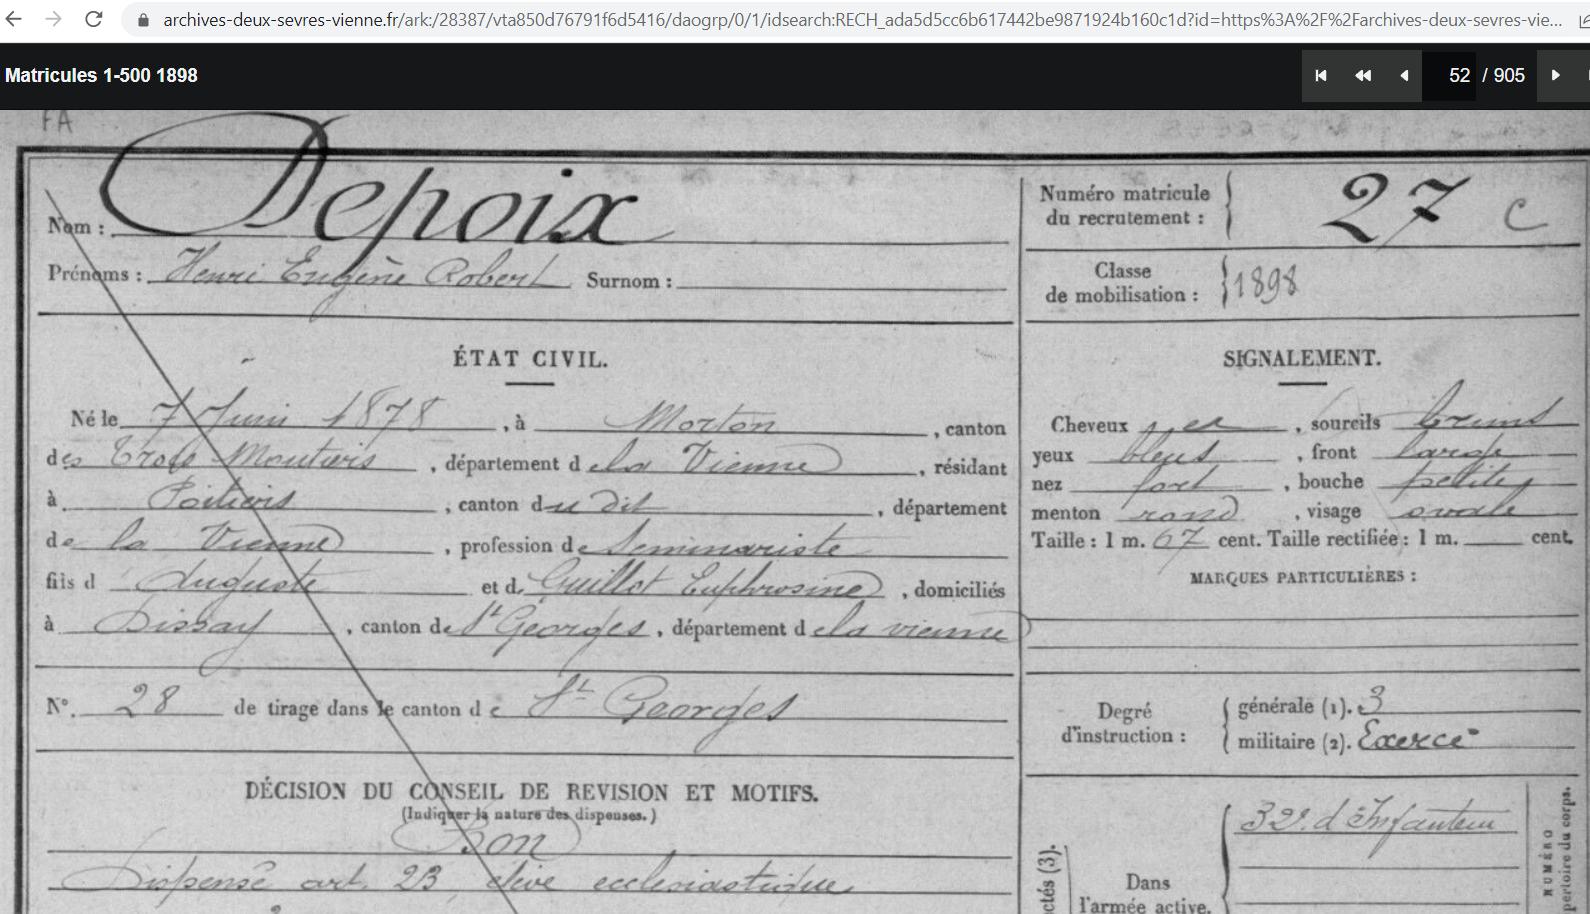 archives-deux-sevres-vienne.fr/ark:/28387/vta850d76791f6d5416/daogrp/0/1/idsearch:RECH_ada5d5cc6b617442be9871924b160c1d?id=https%3A%2F%2Farchives-deux-sevres-vie...
Matricules 1-500 1898
52 / 905
FA
Nom : Depoix
Prénoms : Henri Eugène Robert Surnom :
ÉTAT CIVIL.
Né le 7 Juin 1878, à Morton, canton
des Trois Moutiers, département de la Vienne, résidant
à Poitiers, canton du dit, département
de la Vienne, profession de Seminariste
fils d Auguste et de Guillot Euphrosine, domiciliés
à Dissay, canton de St Georges, département de la vienne
N°. 28 de tirage dans le canton de St Georges
DÉCISION DU CONSEIL DE REVISION ET MOTIFS.
(Indiquer la nature des dispenses.)
Bon
Dispensé art. 23 élève ecclesiastique
Numéro matricule
du recrutement : 27 C
Classe
de mobilisation : 1898
SIGNALEMENT.
Cheveux, sourcils bruns
yeux bleus, front large
nez fort, bouche petite
menton rond, visage ovale
Taille : 1 m. 67 cent. Taille rectifiée : 1 m. cent.
MARQUES PARTICULIÈRES :
Degré
d'instruction :
générale (1). 3
militaire (2). Exercé
32e d'Infanterie
Dans
l'armée active.
ctés (3).
NUMÉRO
pertoire du corps.